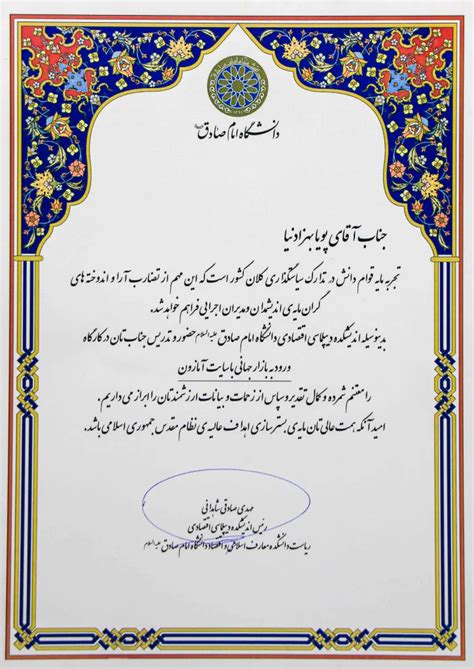 دانشگاه امام صادق
جناب آقای پویا بهزادنیا
تجربه مایه قوام دانش در تدارک سیاستگذاری کلان کشور است که این مهم از تضارب آرا و اندوخته های
گران مایه ی اندیشمندان و مدیران اجرایی فراهم خواهد شد.
بدینوسیله اندیشکده دیپلماسی اقتصادی دانشگاه امام صادق علیه السلام حضور و تدریس جناب تان در کارگاه
ورود به بازار جهانی با سایت آمازون
را مغتنم شمرده و کمال تقدیر و سپاس از زحمات و بیانات ارزشمندتان را ابراز می داریم.
امید آنکه همت عالی تان مایه ی بسترسازی اهداف عالیه ی نظام مقدس جمهوری اسلامی باشد.
مهدی صادقی شاهدانی
رئیس اندیشکده دیپلماسی اقتصادی
ریاست دانشکده معارف اسلامی و اقتصاد دانشگاه امام صادق علیه السلام